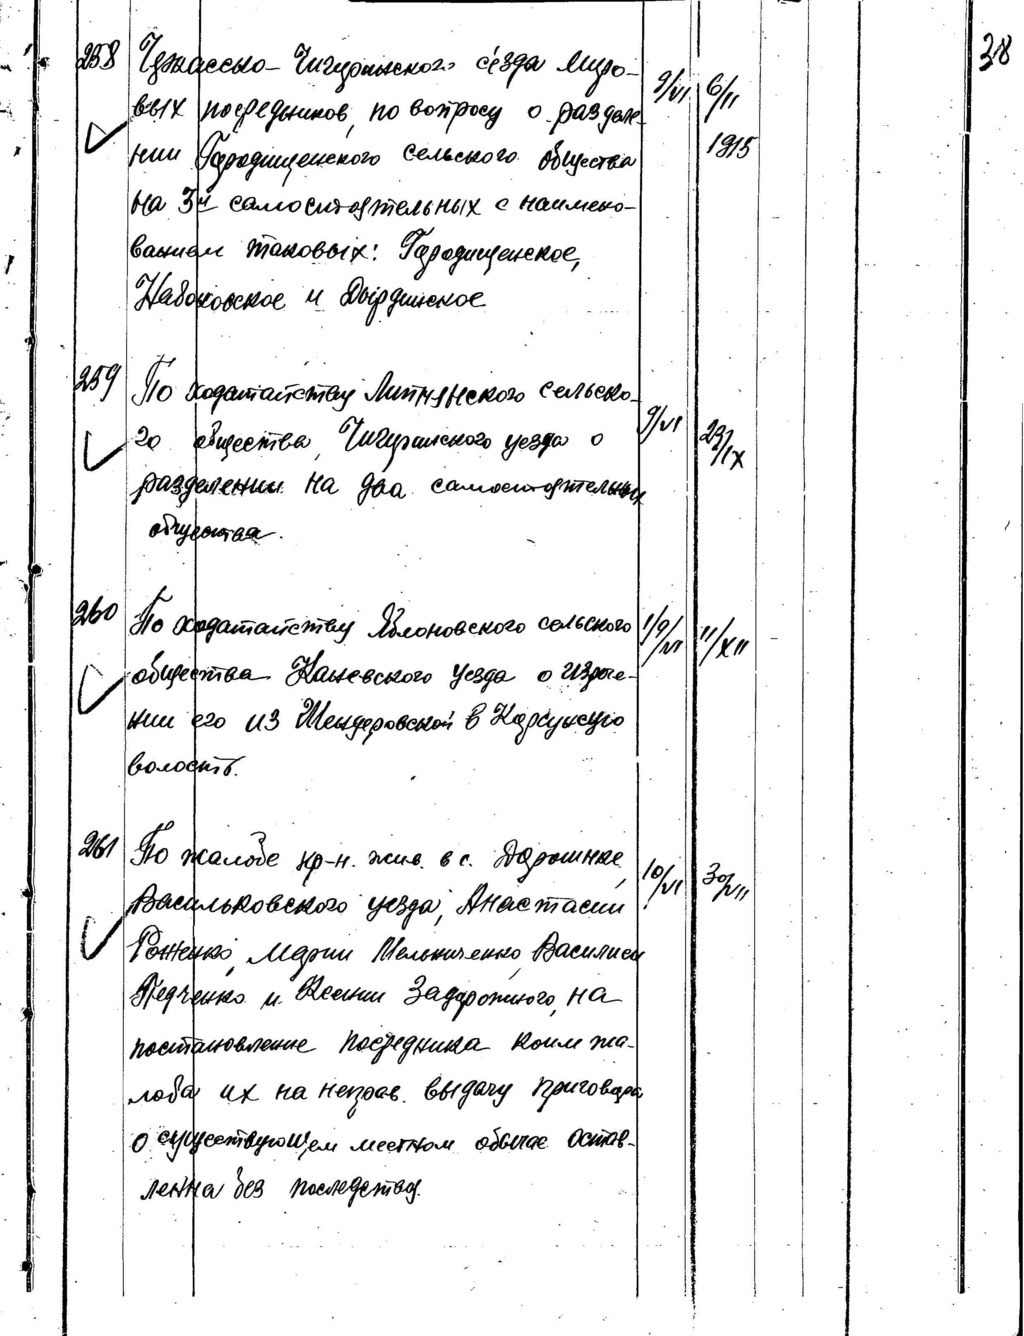 38
258 Черкасско-Чигиринского съезда миро- 9/VI 6/II
вых посредников, по вопросу о разделе- 1915
нии Городищенского сельского общества
на 3й самостоятельных с наимено-
ванием таковых: Городищенское,
Набоковское и Дырдинское
259 По ходатайству Липнянского сельско- 9/VI 29/IX
го общества, Чигиринского уезда о
разделении на два самостоятельных
общества.
260 По ходатайству Яблоновского сельского 19/VI 11/XII
общества Каневского уезда о
нии его из Шендеровской в Корсунскую
волость.
261 По жалобе кр-н. жив. в с. 10/VI 30/VII
Васильковского уезда, Анастасии
Роженко, Марии Мельниченко, Василисы
Педченко и Ксении Задорожного, на
постановление посредника коим жа-
лоба их на неправ. выдачу приговора
о существующем местном обычае остав-
ленна без последствия.